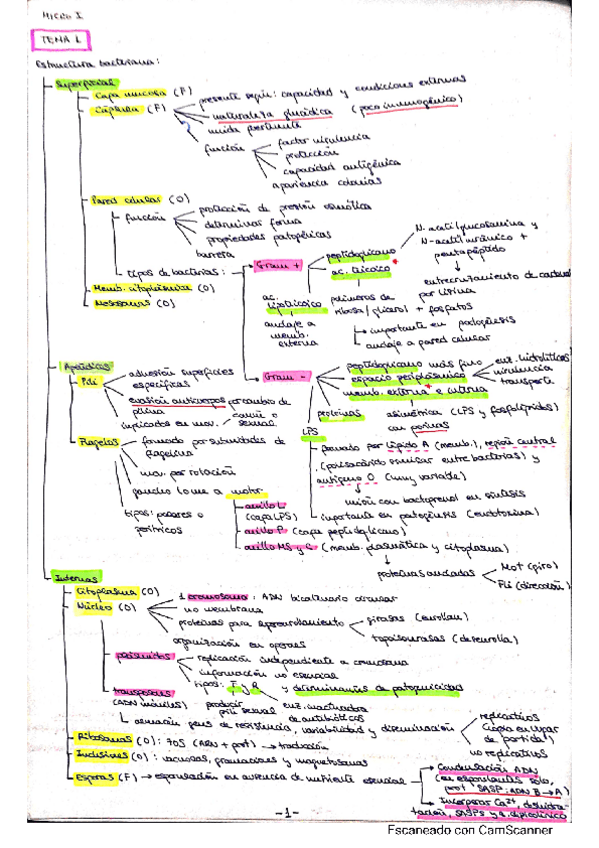 MICRO I
TEMA 1
Estructura bacteriana:
Superficial
Capa mucosa (F)
Cápsula (F)
presente según: capacidad y condiciones externas
naturaleza glucídica (poco inmunogénico)
unida
función
factor virulencia
protección
capacidad antigénica
apariencia colonias
Pared celular (O)
función
protección de presión osmótica
determinar forma
propiedades patogénicas
barrera
tipos de bacterias:
Gram +
peptidoglicano
N-acetilglucosamina y
N-acetilmurámico +
pentapéptido
entrecruzamiento de
por lisina
ac. teicoico *
polímeros de
ribosa/glicerol + fosfatos
importante en patogénesis
anclaje a pared celular
ac.
lipoteicoico
anclaje a
memb.
externa
Memb. citoplasmática (O)
Mesosomas (O)
Gram -
peptidoglicano más fino
espacio periplásmico
enz. hidrolíticos
virulencia
transporte
memb. externa * e interna
asimétrica (LPS y fosfolípidos)
con porinas
proteínas
LPS
formado por lípido A (memb.), región central
(polisacárido similar entre bacterias) y
antígeno O (muy variable)
unión con bactoprenol en síntesis
importante en patogénesis (endotoxina)
Apéndices
Pili
adhesión superficies
específicas
evasión anticuerpos por cambio de
pilina
implicados en mov.
común o
sexual
Flagelos
formado por subunidades de
flagelina
mov. por rotación
gancho (une a motor)
anillo L
(capa LPS)
anillo P (capa peptidoglicano)
anillo MS y C (memb. plasmática y citoplasma)
proteínas ancladas
Mot (giro)
Fli (dirección)
tipos: polares o
perítricos
Internas
Citoplasma (O)
Núcleo (O)
1 cromosoma: ADN bicatenario circular
no membrana
proteínas para superenrollamiento
girasas (enrollan)
topoisomerasas (desenrolla)
organización en operones
plásmidos
replicación independiente a cromosoma
información no esencial
tipos: F y R y determinantes de patogenicidad
producir
pili sexual
enz. inactivadora
de antibióticos
transposones
(ADN móviles)
genes de resistencia, variabilidad y diseminación
replicativos
(copia en lugar
de partida)
no replicativos
Ribosomas (O): 70S (ARN + prot) → traducción
Inclusiones (O): vacuolas, granulaciones y magnetosomas
Esporas (F) → esporulación en ausencia de nutriente esencial
Condensación ADN
(en esporulantes sólo,
prot SASP: ADN B → A)
Incorporar Ca²⁺, deshidra-
tación, SASPs y á. dipicolínico
-1-
Escaneado con CamScanner